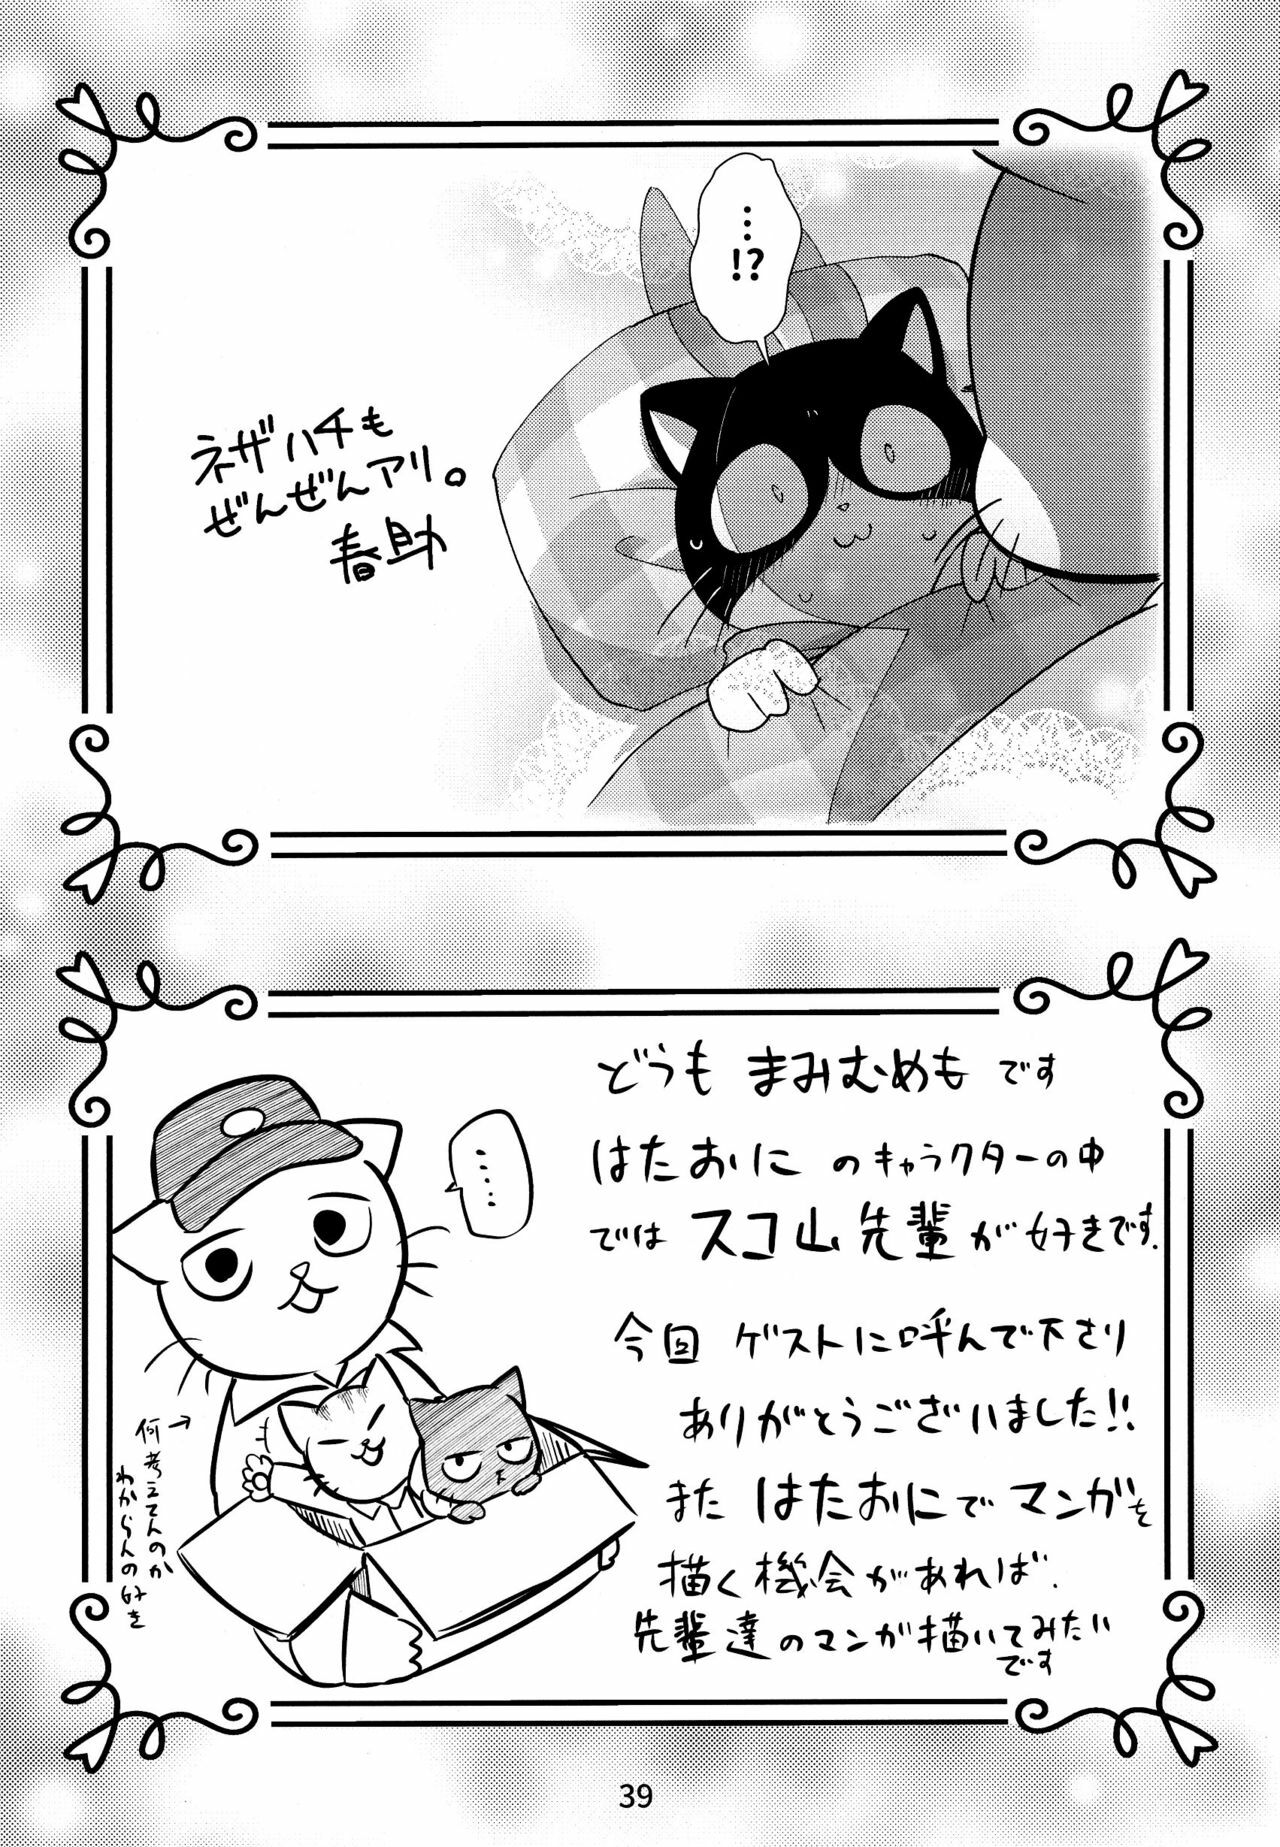 …!?
ネザハチも
ぜんぜんアリ。
春助
どうも まみむめも です
はたおに のキャラクターの中
では スコ山先輩が好きです。
今回 ゲストに呼んで下さり
ありがとうございました!!
また はたおにで マンガを
描く機会があれば、
先輩達のマンガ描いてみたい
です
……
何考えてんのか
わからんの好き
39